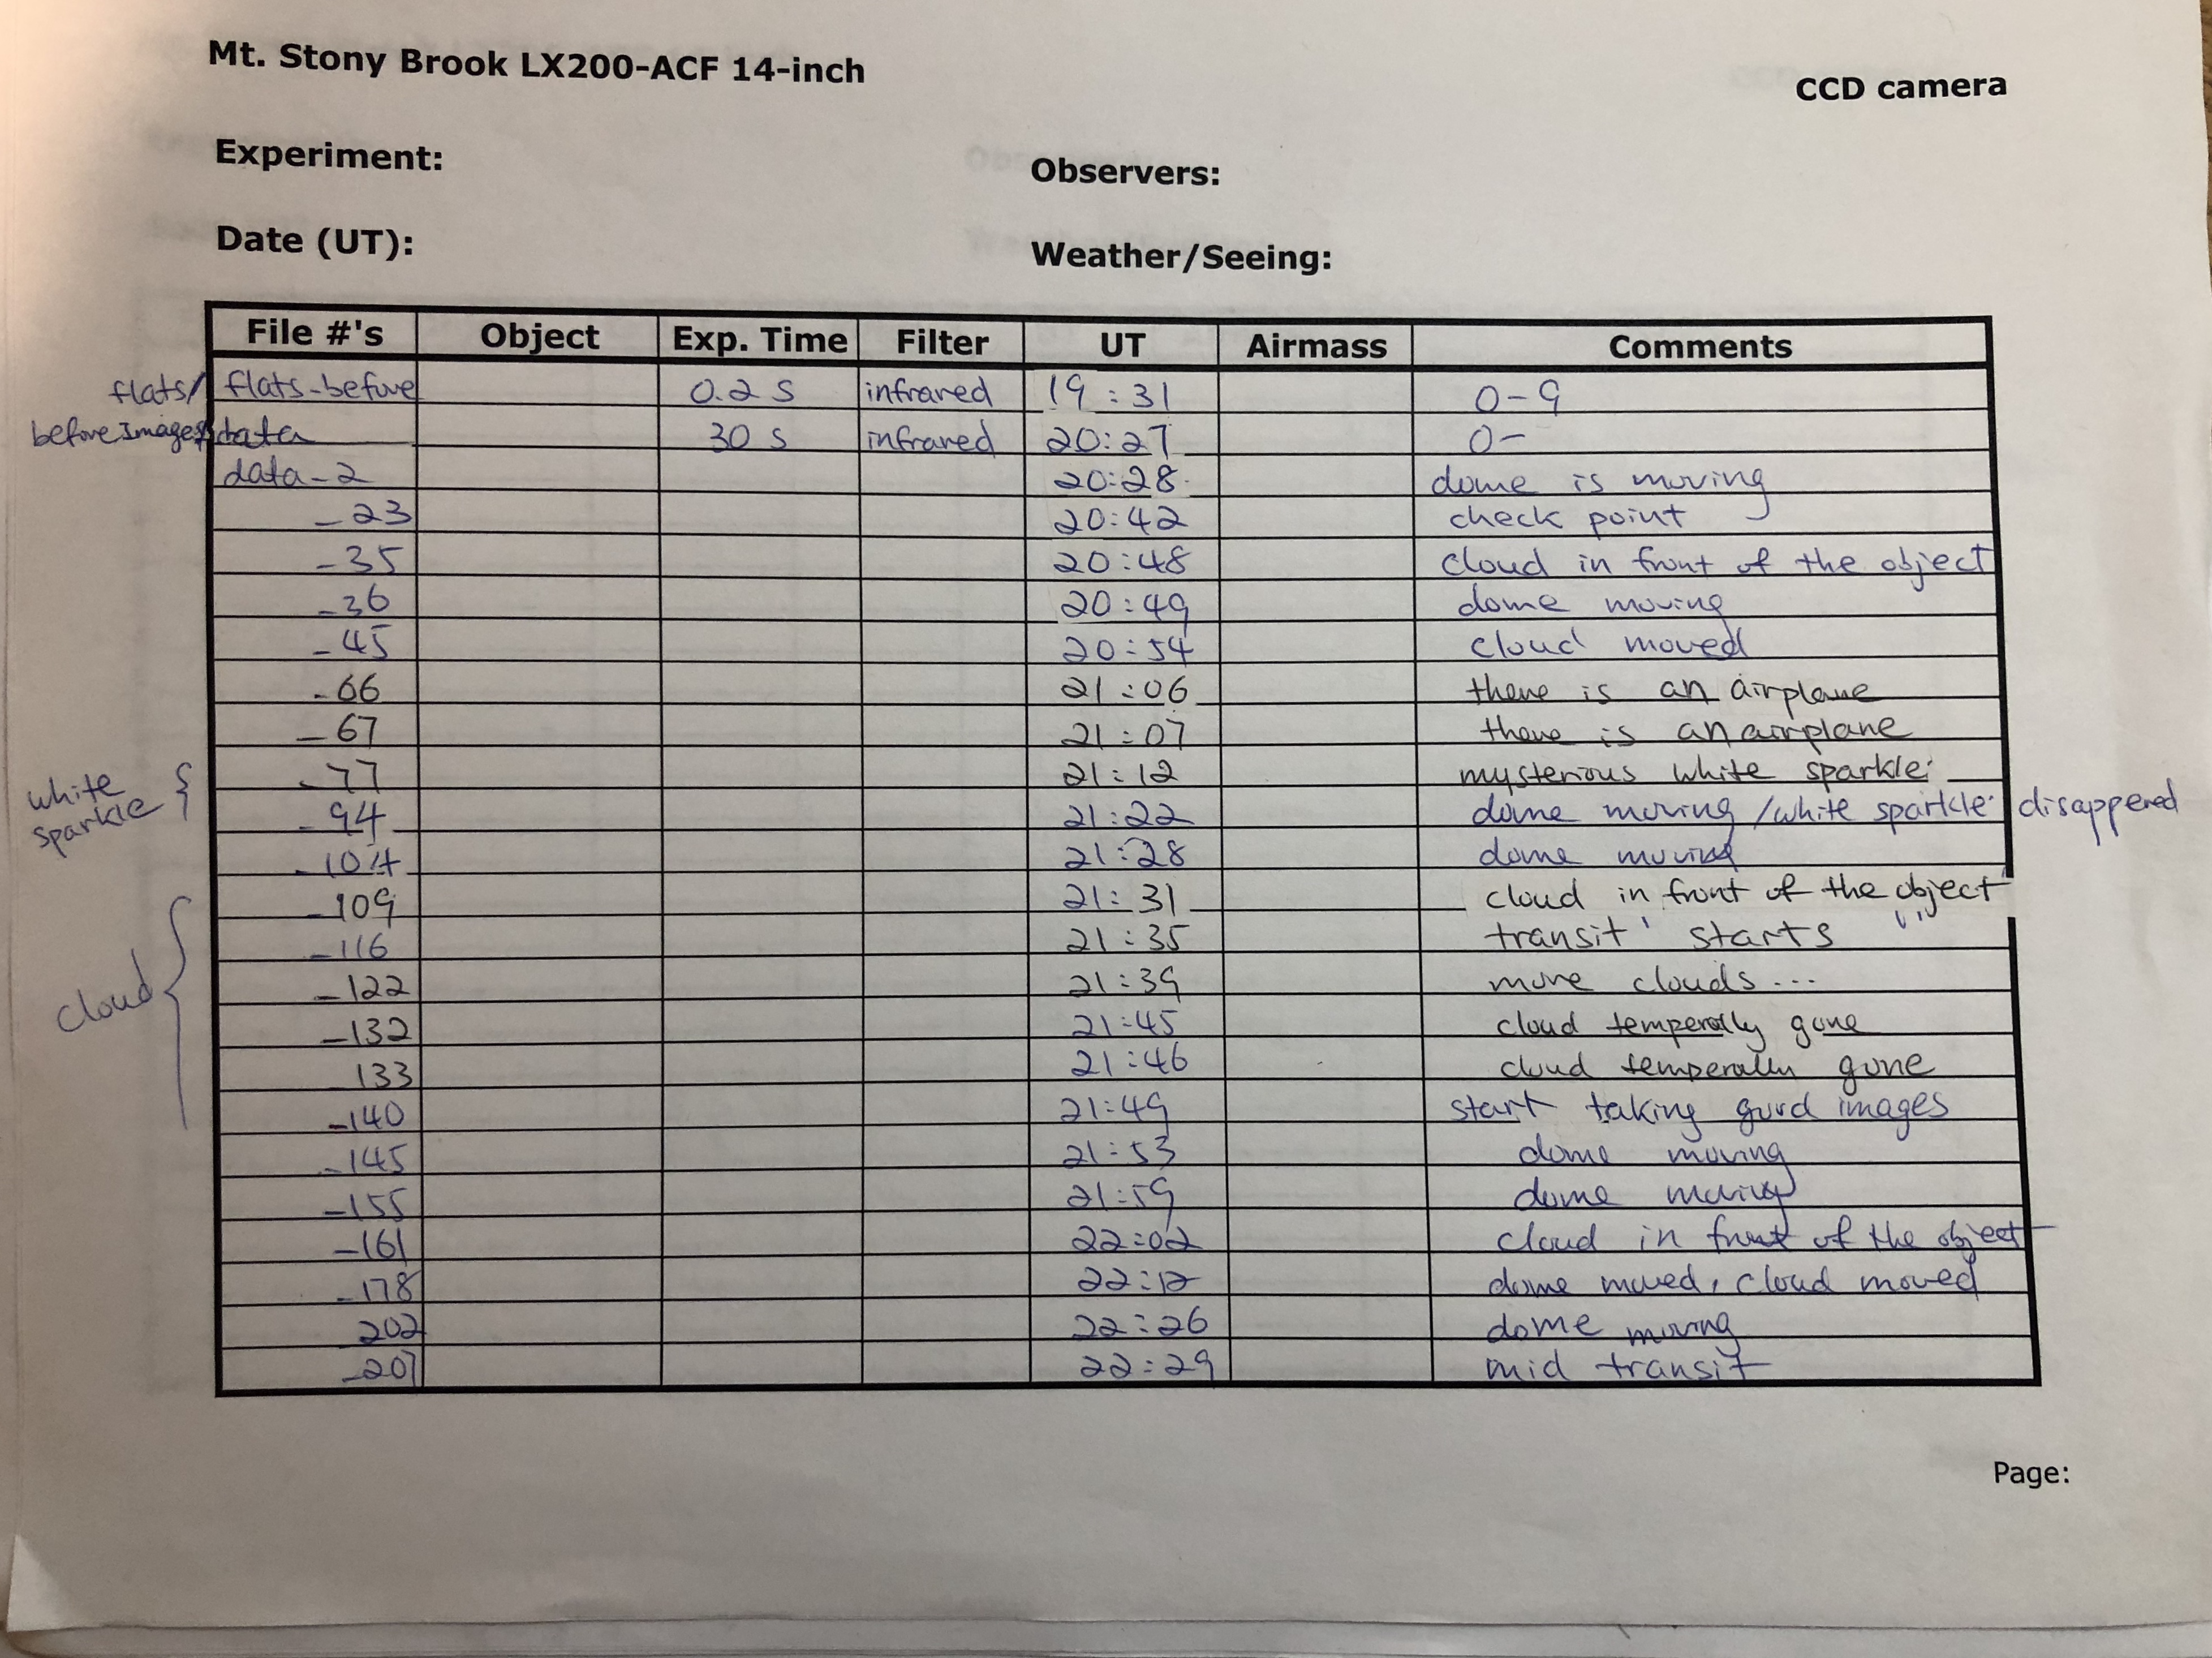 Mt. Stony Brook LX200-ACF 14-inch
CCD camera
Experiment:
Observers:
Date (UT):
Weather/Seeing:
File #'s Object Exp. Time Filter UT Airmass Comments
flats/ flats-before 0.2 s infrared 19:31 0-9
beforeImages/ data 30 s infrared 20:27 0-
data-2 20:28 dome is moving
-23 20:42 check point
-35 20:48 cloud in front of the object
-36 20:49 dome moving
-45 20:54 cloud moved
-66 21:06 there is an airplane
-67 21:07 there is an airplane
white sparkle
-77 21:12 mysterious white sparkle
-94 21:22 dome moving/white sparkle disappered
-104 21:28 dome moving
-109 21:31 cloud in front of the object
-116 21:35 transit starts
cloud
-122 21:39 more clouds...
-132 21:45 cloud temperally gone
133 21:46 cloud temperally gone
-140 21:49 start taking gurd images
-145 21:53 dome moving
-155 21:59 dome moving
-161 22:02 cloud in front of the object
-178 22:12 dome moved, cloud moved
202 22:26 dome moving
-207 22:29 mid transit
Page: